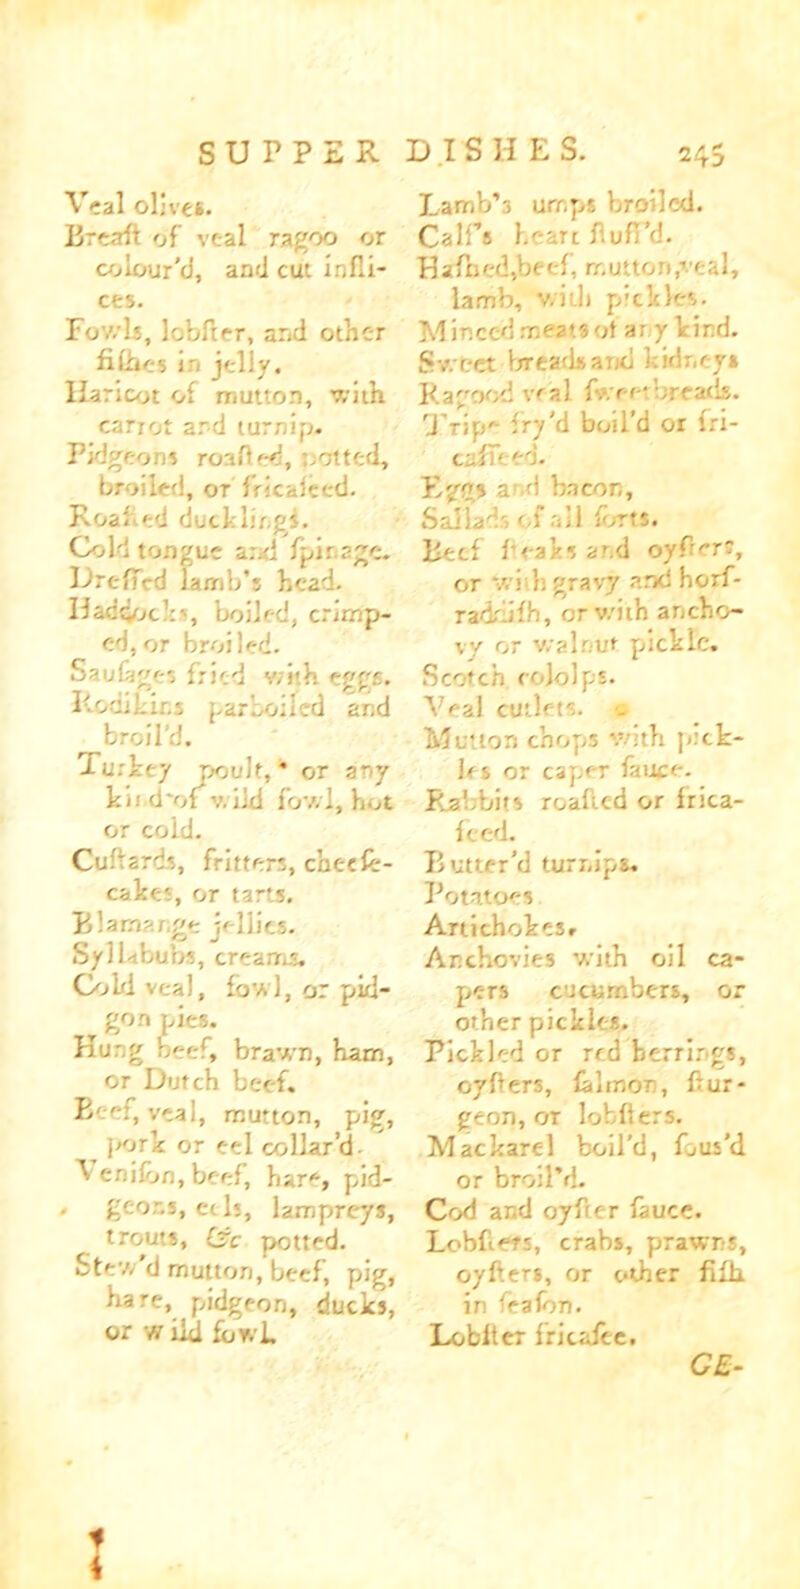 SUPPER DISHES. 245
Veal olives.
Breaſt of veal ragoo or
colour'd, and cut in ſli-
ces.
Fowls, lobſter, and other
fiſhes in jelly.
Haricot of mutton, with
carrot and turnip.
Pidgeons roaſted, potted,
broiled, or fricaſeed.
Roaſted ducklings.
Cold tongue and ſpinage.
Dreſſed lamb's head.
Haddocks, boiled, crimp-
ed, or broiled.
Sauſages fried with eggs.
Bodikins parboiled and
broil'd.
Turkey poult, * or any
kind of wild fowl, hot
or cold.
Cuſtards, fritters, cheeſe-
cakes, or tarts.
Blamange jellies.
Syllabubs, creams.
Cold veal, fowl, or pid-
gon pies.
Hung beef, brawn, ham,
or Dutch beef.
Beef, veal, mutton, pig,
pork or eel collar'd.
Veniſon, beef, hare, pid-
geons, eels, lampreys,
trouts, &c potted.
Stew'd mutton, beef, pig,
hare, pidgeon, ducks,
or wild fowl.
Lamb's umps broiled.
Calf's heart ſtuff'd.
Haſhed, beef, mutton, veal,
lamb, with pickles.
Minced meats of any kind.
Sweet breads and kidneys
Ragood veal ſweetbreads.
Tripe fry'd boil'd or fri-
caſſeed.
Eggs and bacon,
Sallads of all ſorts.
Beef ſteaks and oyſters,
or with gravy and horſ-
radiſh, or with ancho-
vy or walnut pickle.
Scotch collops.
Veal cutlets.
Mutton chops with pick-
les or caper ſauce.
Rabbits roaſted or frica-
ſeed.
Butter'd turnips.
Potatoes
Artichokes,
Anchovies with oil ca-
pers cucumbers, or
other pickles.
Pickled or red herrings,
oyſters, ſalmon, ſtur-
geon, or lobſters.
Mackarel boil'd, ſous'd
or broil'd.
Cod and oyſter ſauce.
Lobſters, crabs, prawns,
oyſters, or other fiſh
in ſeaſon.
Lobſter fricaſee.
GE-